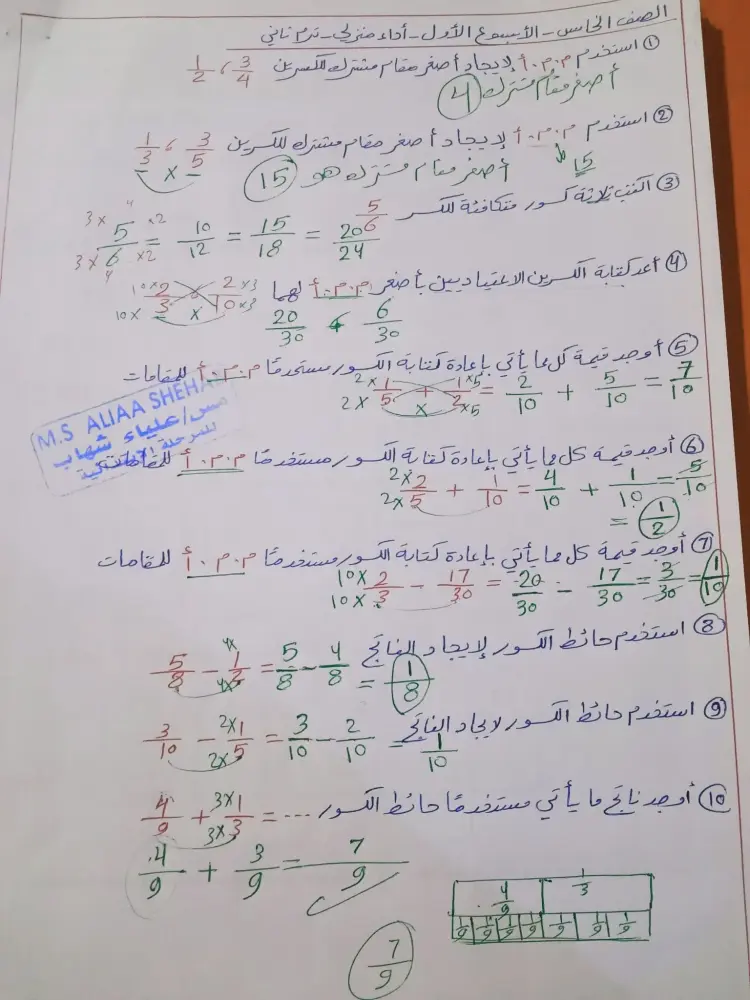 الصف الخامس - الأسبوع الأول - أداء منزلي - ترم ثاني
① استخدم م.م.أ لإيجاد أصغر مقام مشترك للكسرين 3/4 ، 1/2
أصغر مقام مشترك 4
② استخدم م.م.أ لإيجاد أصغر مقام مشترك للكسرين 3/5 ، 1/3
15
× أصغر مقام مشترك هو 15
③ اكتب ثلاثة كسور متكافئة للكسر 5/6
5/6 = 10/12 = 15/18 = 20/24
④ أعد كتابة الكسرين الاعتياديين بأصغر م.م.أ لهما 2/10 2/3
20/30 ، 6/30
⑤ أوجد قيمة كل مما يأتي بإعادة كتابة الكسور مستخدمًا م.م.أ للمقامات
2×1/2×5 + 1×5/2×5 = 2/10 + 5/10 = 7/10
M.S ALIAA SHEHA
مس/علياء شهاب
⑥ أوجد قيمة كل مما يأتي بإعادة كتابة الكسور مستخدمًا م.م.أ للمقامات
2×2/2×5 + 1/10 = 4/10 + 1/10 = 5/10
= 1/2
⑦ أوجد قيمة كل مما يأتي بإعادة كتابة الكسور مستخدمًا م.م.أ للمقامات
10×2/10×3 - 17/30 = 20/30 - 17/30 = 3/30 = 1/10
⑧ استخدم حائط الكسور لإيجاد الناتج
5/8 - 4×1/4×2 = 5/8 - 4/8 = 1/8
⑨ استخدم حائط الكسور لإيجاد الناتج
3/10 - 2×1/2×5 = 3/10 - 2/10 = 1/10
⑩ أوجد ناتج ما يأتي مستخدمًا حائط الكسور ... = 4/9 + 3×1/3×3
4/9 + 3/9 = 7/9
4/9 1/3
1/9 1/9 1/9 1/9 1/9 1/9 1/9
7/9